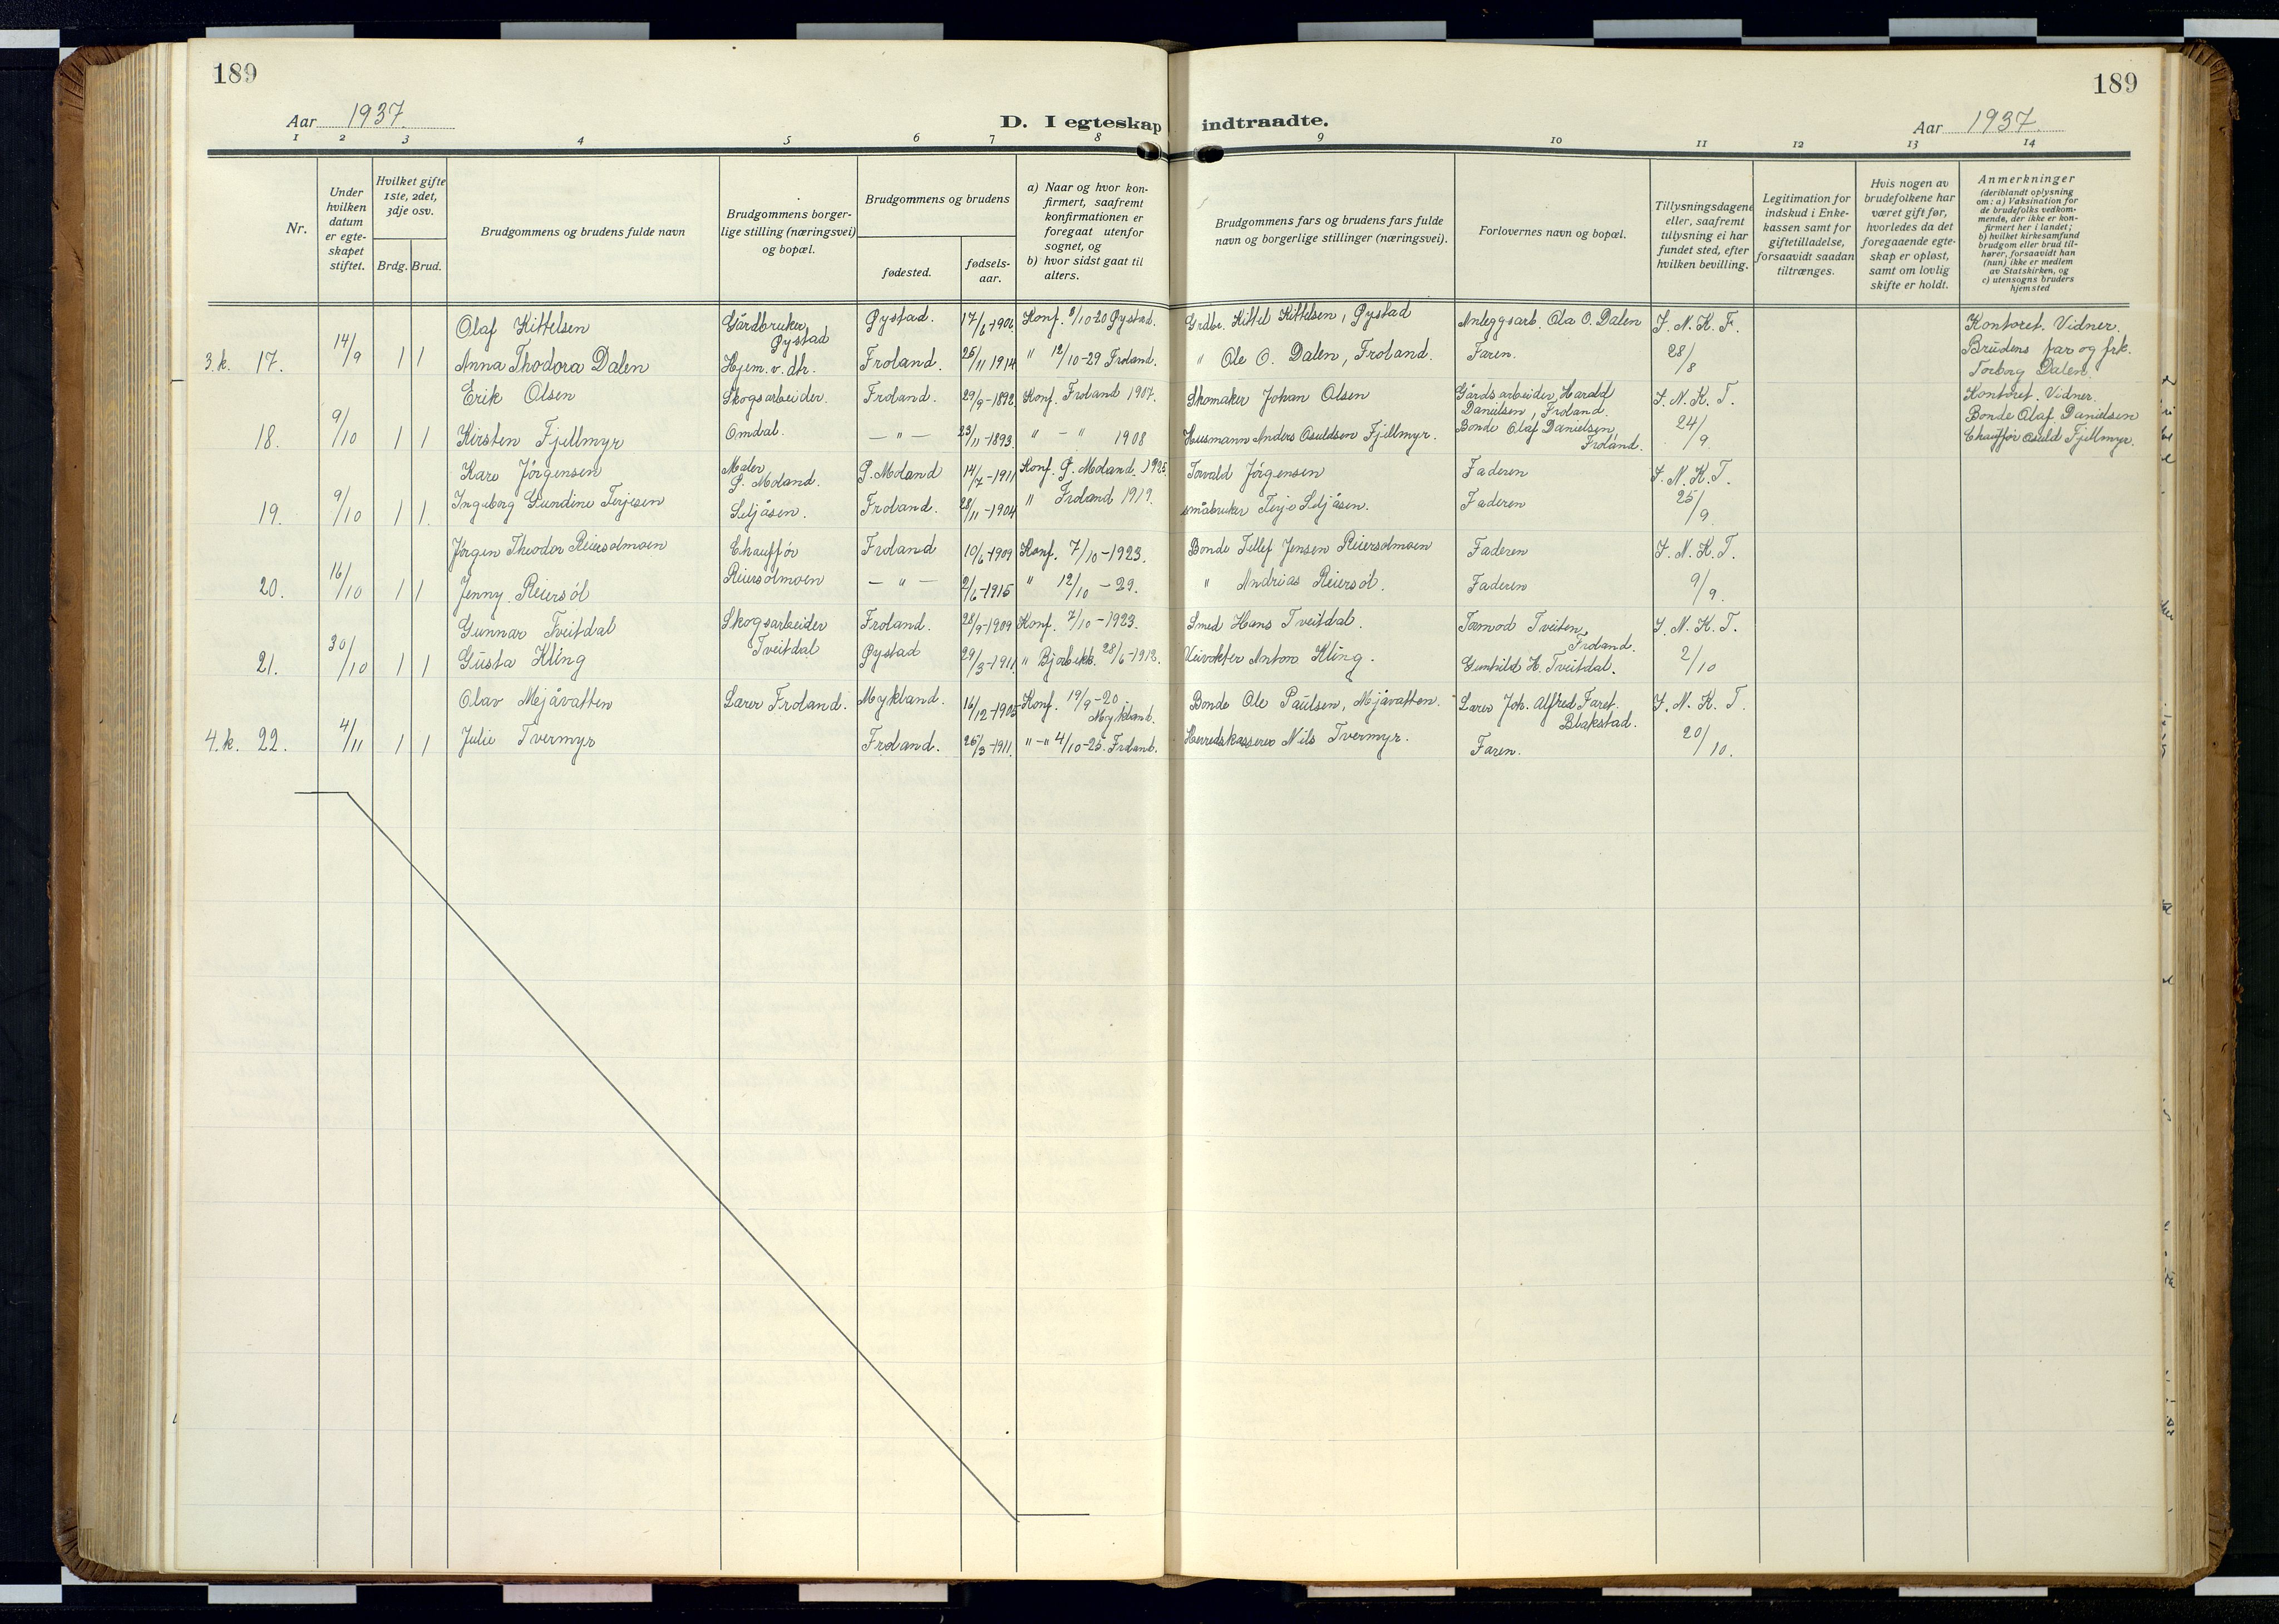 189
189
Aar 1937.
D. I egteskap indtraadte.
Aar 1937.
1 2 3 4 5 6 7 8 9 10 11 12 13 14
Nr.
Under hvilken datum er egteskapet stiftet.
Hvilket gifte 1ste, 2det, 3dje osv.
Brdg. Brud.
Brudgommens og brudens fulde navn
Brudgommens borgerlige stilling (næringsvei) og bopæl.
Brudgommens og brudens
fødested.
fødselsaar.
a) Naar og hvor konfirmert, saafremt konfirmationen er foregaat utenfor sognet, og
b) hvor sidst gaat til alters.
Brudgommens fars og brudens fars fulde navn og borgerlige stillinger (næringsvei).
Forlovernes navn og bopæl.
Tillysningsdagene eller, saafremt tillysning ei har fundet sted, efter hvilken bevilling.
Legitimation for indskud i Enkekassen samt for giftetilladelse, forsaavidt saadan tiltrænges.
Hvis nogen av brudefolkene har været gift før, hvorledes da det foregaaende egteskap er opløst, samt om lovlig skifte er holdt.
Anmerkninger (deriblandt oplysning om: a) Vaksination for de brudefolks vedkommende, der ikke er konfirmert her i landet; b) hvilket kirkesamfund brudgom eller brud tilhører, forsaavidt han (hun) ikke er medlem av Statskirken, og c) utensogns bruders hjemsted
Olaf Kittelsen Gårdbruker Øystad Øystad. 17/6-1906 Konf. 8/10-20 Øystad. Grdbr. Kittel Kittelsen, Øystad Anleggsarb. Ola O. Dalen S. N. K. F. Kontoret. Vidner.
3.k. 17. 14/9 1 1 Anna Thodora Dalen Hjem. v. dtr. Froland. 25/11 1914 " 12/10-29 Froland. " Ole O. Dalen, Froland. Faren. 28/8 Brudens far og frk. Torborg Dalen.
Erik Olsen Skogsarbeider. Froland. 29/9-1892 Konf. Froland 1907. Skomaker Johan Olsen Gårdsarbeider Harald Danielsen, Froland. S. N. K. T. Kontoret. Vidner.
18. 9/10 1 1 Kirsten Fjellmyr Omdal. — " — 23/11-1893 " - " 1908 Husmann Anders Osuldsen Fjellmyr. Bonde Olaf Danielsen Froland. 24/9. Bonde Olaf Danielsen Chauffør Osuld Fjellmyr.
Kare Jørgensen Maler Ø. Moland. Ø. Moland 14/7-1911 Konf. Ø. Moland. 1925 Torvald Jørgensen Faderen S. N. K. T.
19. 9/10 1 1. Ingeborg Gundine Terjesen Seljåsen. Froland. 28/11-1904 " Froland 1919. småbruker Terje Seljåsen. Faderen 25/9.
Jørgen Theodor Reiersølmoen Chauffør Froland 10/6-1909 Konf. 7/10-1923. Bonde Tellef Jensen Reiersølmoen Faderen S. N. K. T.
20. 16/10 1 1 Jenny Reiersøl Reiersølmoen — " — 2/6-1915 " 12/10 - 29. " Andreas Reiersøl. Faderen 9/9.
Gunnar Tveitdal Skogsarbeider Froland. 28/9-1909 Konf. 7/10-1923. Smed Hans Tveitdal. Tormod Tveiten, Froland. S. N. K. T.
21. 30/10 1 1 Gusta Kling Tveitdal Øystad 29/3-1911 " Bjorbekk. 28/6-1918. Veivokter Anton Kling. Gunhild H. Tveitdal. 2/10
Olav Mejåvatten Lærer Froland. Mykland. 16/12-1905 Konf. 19/9-20 Mykland. Bonde Ole Paulsen, Mjåvatten. Lærer Joh. Alfred Faret. Blakstad. S. N. K. T.
4.k. 22. 4/11 1 1 Julie Tvermyr Froland. 26/3-1911. "-" 4/10-25. Froland. Herredskasserer Nils Tvermyr. Faren. 20/10.